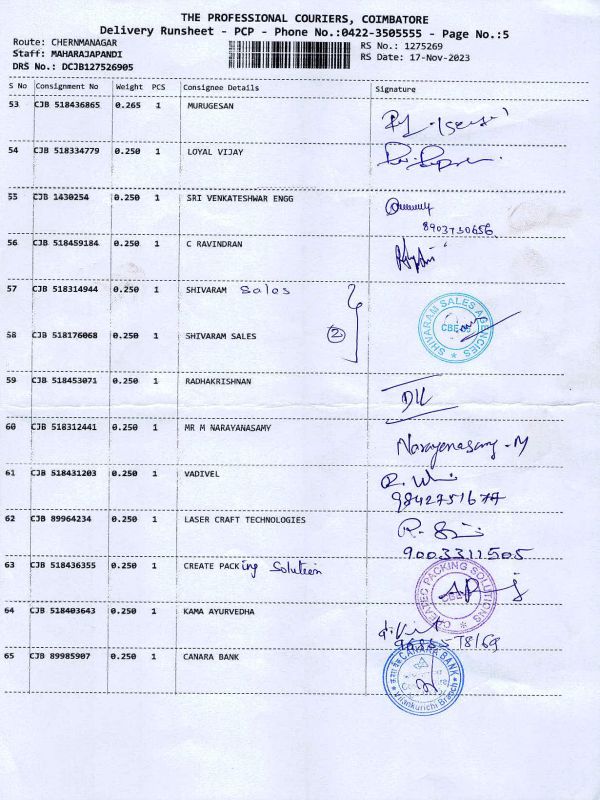 THE PROFESSIONAL COURIERS, COIMBATORE
Delivery Runsheet - PCP - Phone No.:0422-3505555 - Page No.:5
Route: CHERNMANAGAR
RS No.: 1275269
Staff: MAHARAJAPANDI
RS Date: 17-Nov-2023
DRS No.: DCJB127526905
S No Consignment No Weight PCS Consignee Details Signature
53 CJB 518436865 0.265 1 MURUGESAN
54 CJB 518334779 0.250 1 LOYAL VIJAY
55 CJB 1430254 0.250 1 SRI VENKATESHWAR ENGG
8903730656
56 CJB 518459184 0.250 1 C RAVINDRAN
57 CJB 518314944 0.250 1 SHIVARAM Sales
SHIVARAM SALES AGENCIES
58 CJB 518176068 0.250 1 SHIVARAM SALES 2
59 CJB 518453071 0.250 1 RADHAKRISHNAN
60 CJB 518312441 0.250 1 MR M NARAYANASAMY
Narayanasamy-M
61 CJB 518431203 0.250 1 VADIVEL
9842751677
62 CJB 89964234 0.250 1 LASER CRAFT TECHNOLOGIES
9003311505
63 CJB 518436355 0.250 1 CREATE PACKing Solution
CREATEC PACKING SOLUTIONS
64 CJB 518403643 0.250 1 KAMA AYURVEDHA
65 CJB 89985907 0.250 1 CANARA BANK
CANARA BANK
Vilankurichi Branch